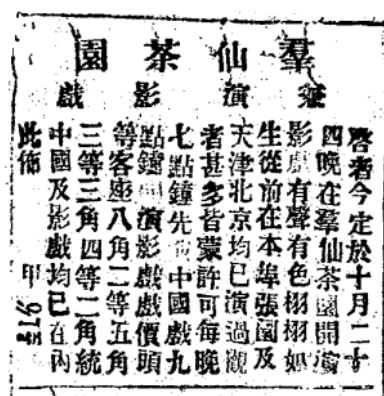 羣仙茶園
兼演影戲
啓者今定於十月二十
四晚在羣仙茶園開演
影戲有聲有色栩栩如
生從前在本埠張園及
天津北京均已演過觀
者甚多皆蒙許可每晚
七點鐘先中國戲九
點鐘演影戲戲價頭
等客座八角二等五角
三等三角四等二角統
中國及影戲均已在內
此佈 甲